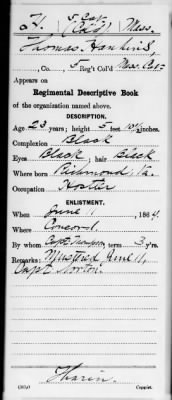 H. 5 Cav. (Col'd) Mass.
Thomas Hawkins,
, Co. , 5 Reg't Col'd Mass. Cav.
Appears on
Regimental Descriptive Book
of the organization named above.
DESCRIPTION.
Age 23 years; height 5 feet inches.
Complexion Black
Eyes Black; hair Black
Where born Richmond, Va.
Occupation Hostler
ENLISTMENT.
When June 11, 1864.
Where Concord
By whom Capt. , term 3 y'rs.
Remarks: Mustered June 11,
Capt. Norton.
Copyist.